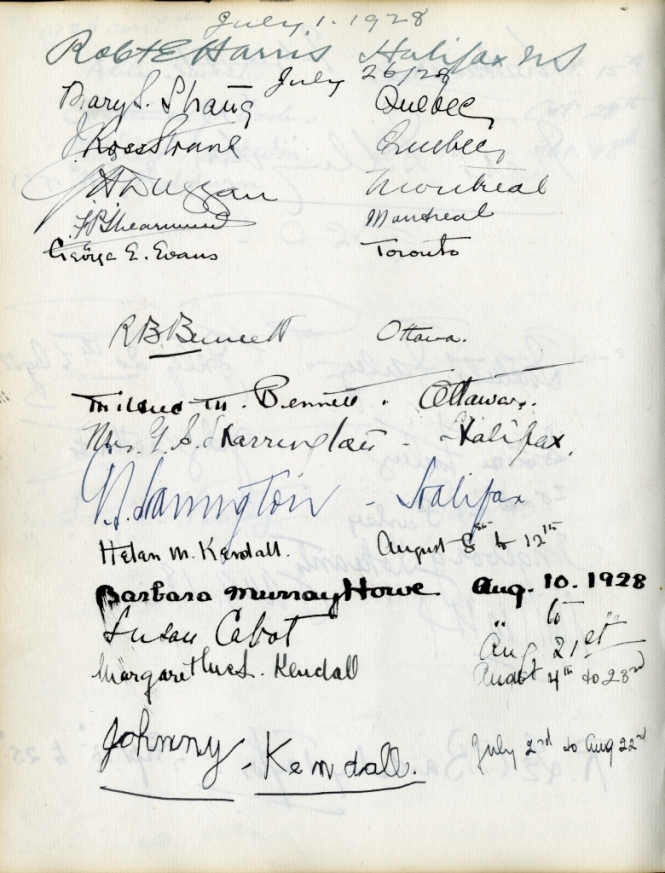 July 1. 1928
Robt E Harris Halifax NS
July 26/28
Mary S. Quebec
J Ross Quebec
Duggan Montreal
Montreal
George E. Evans Toronto
R.B. Bennett Ottawa.
Mildred M. Bennett. Ottawa.
Mrs. G. S. Harrington - Halifax.
G.S. Harrington - Halifax
Helen M. Kendall. August 8th to 12th
Barbara Murray Howe Aug. 10. 1928
Susan Cabot " to
Aug 21st
Margaret Kendall August 4th to 23rd
Johnny Kendall. July 2nd to Aug 22nd